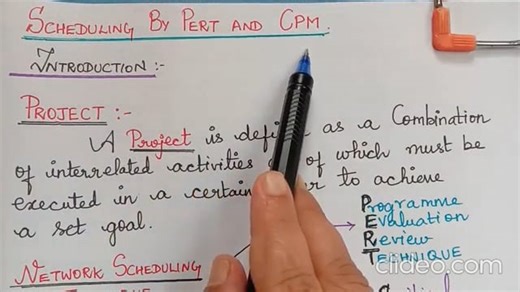 SCHEDULING BY PERT AND CPM
INTRODUCTION :-
PROJECT :-
A Project is as a Combination
of interrelated activities of which must be
executed in a certain to achieve
a set goal.
Programme
Evaluation
Review
TECHNIQUE
NETWORK SCHEDULING
clideo.com